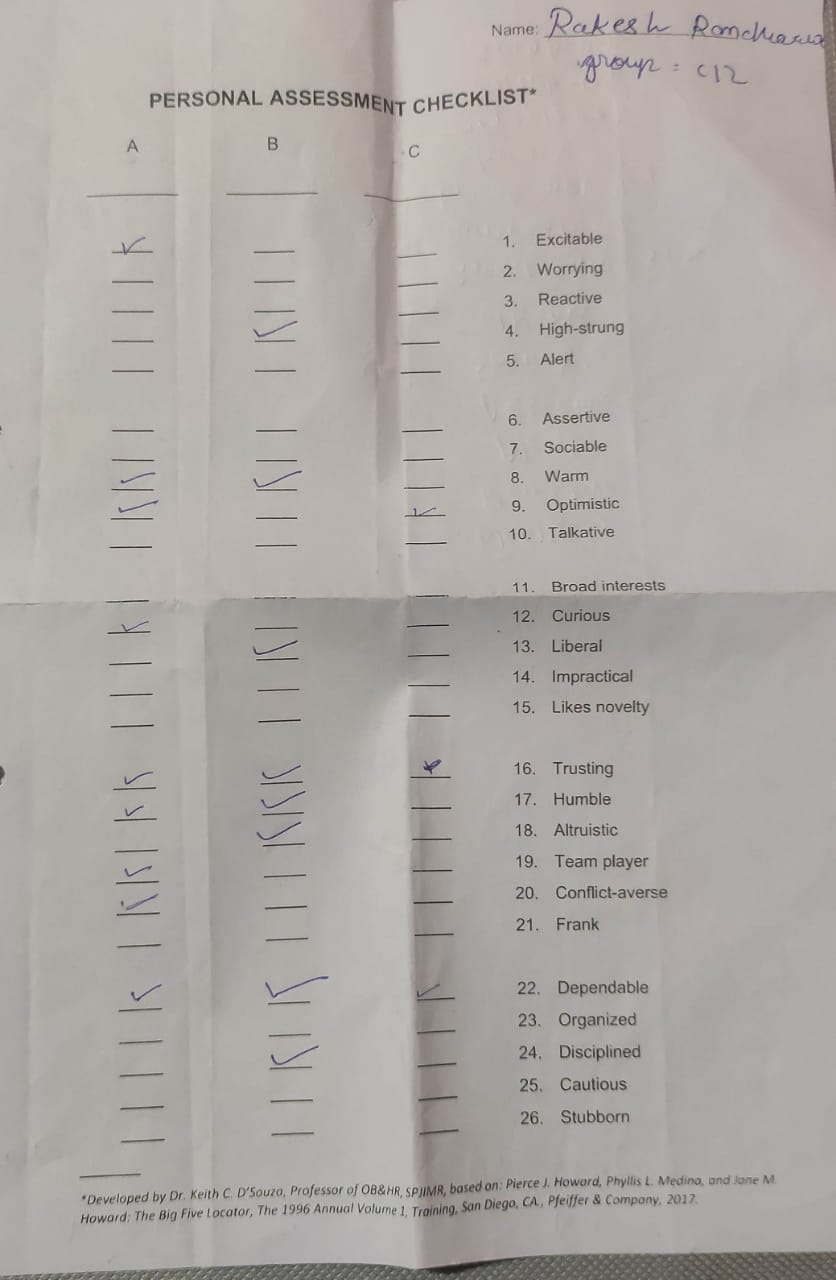 Name: Rakesh
group = C12
PERSONAL ASSESSMENT CHECKLIST*
A B C
1. Excitable
2. Worrying
3. Reactive
4. High-strung
5. Alert
6. Assertive
7. Sociable
8. Warm
9. Optimistic
10. Talkative
11. Broad interests
12. Curious
13. Liberal
14. Impractical
15. Likes novelty
16. Trusting
17. Humble
18. Altruistic
19. Team player
20. Conflict-averse
21. Frank
22. Dependable
23. Organized
24. Disciplined
25. Cautious
26. Stubborn
*Developed by Dr. Keith C. D'Souza, Professor of OB&HR, SPJIMR, based on: Pierce J. Howard, Phyllis L. Medina, and Jane M.
Howard: The Big Five Locator, The 1996 Annual Volume 1, Training, San Diego, CA., Pfeiffer & Company, 2017.